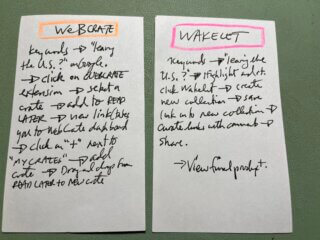 WEBCRATE
Keywords → "leaving
the U.S.?" in Google.
→ click on WEBCRATE
extension → select a
crate → add to READ
LATER → view link (takes
you to WebCrate dashboard
→ click on "+" next to
"MY CRATES" → add
crate → Drag and drop from
READ LATER to New crate
WAKELET
Keywords → "leaving the
U.S.? → Highlight and rt.
click Wakelet → create
new collection → save
link in to new collection →
Curate links with comments →
Share.
→ View final product.